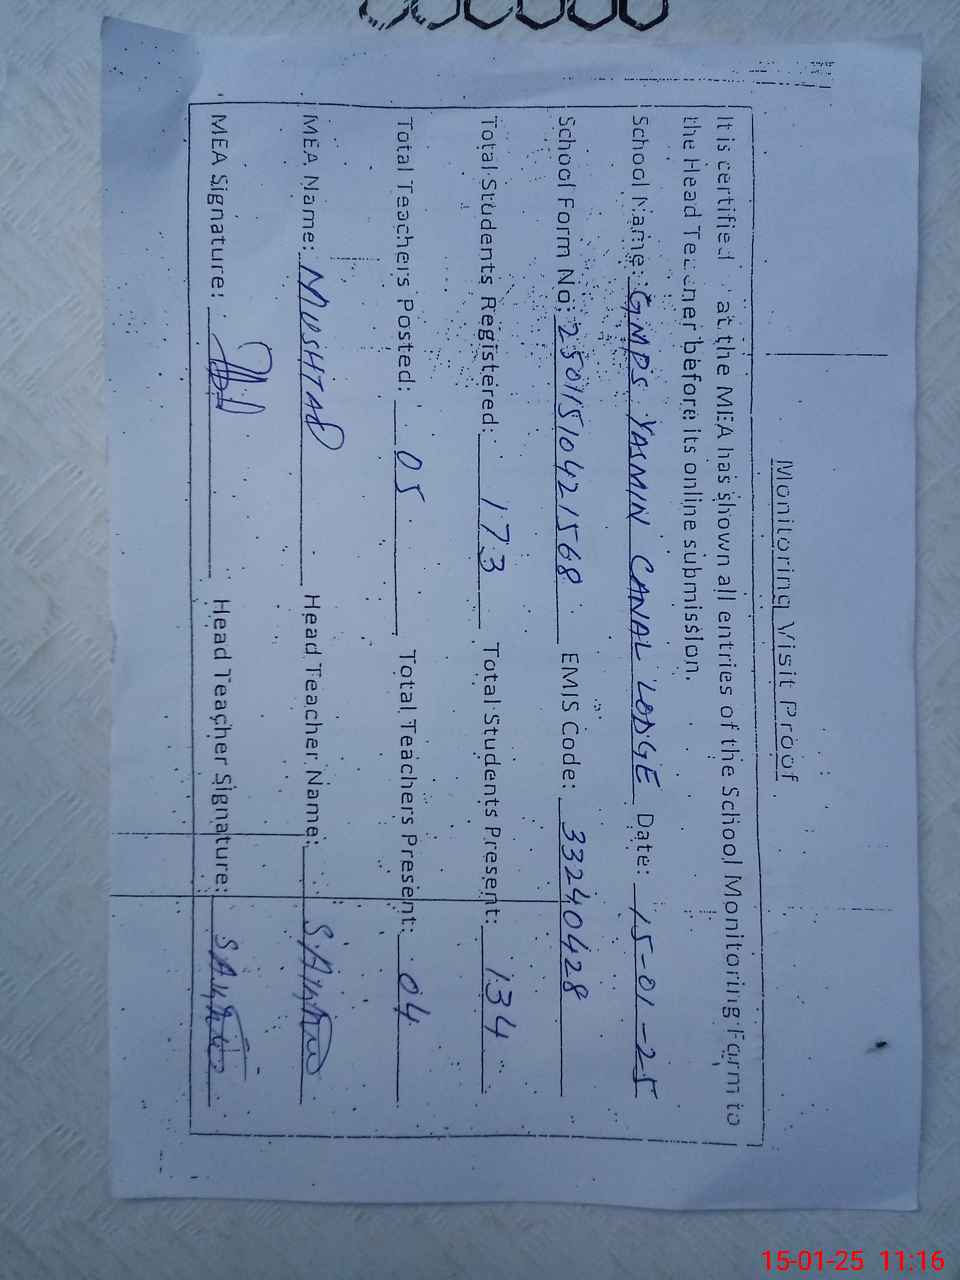 Monitoring Visit Proof
It is certified at the MEA has shown all entries of the School Monitoring Form to
the Head Teacher before its online submission.
School Name: GMPS YASMIN CANAL LODGE Date: 15-01-25
School Form No: 25011510421568 EMIS Code: 33240428
Total Students Registered: 173 Total Students Present: 134
Total Teachers Posted: 05 Total Teachers Present: 04
MEA Name: MUSHTAQ Head Teacher Name:
MEA Signature: Head Teacher Signature:
15-01-25 11:16